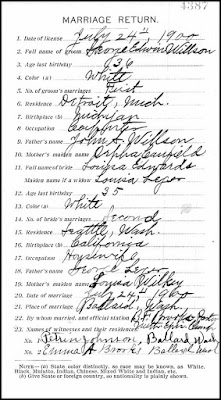 4387
MARRIAGE RETURN.
1. Date of license July 24th, 1900
2. Full name of groom George Edwin Willson
Age last birthday 26
4. Color (a) White
5. No. of groom's marriages First
6. Residence Detroit, Mich.
7. Birthplace Michigan
8. Occupation Carpenter
9. Father's name John A. Willson
10. Mother's maiden name Orpha Canfield
11. Full name of bride Louisa Edwards
Maiden name if a widow Louisa
12. Age last birthday 25
13. Color (a) White
14. No. of bride's marriages Second
15. Residence Seattle, Wash.
16. Birthplace (b) California
17. Occupation Housewife
18. Father's name George
19. Mother's maiden name Louisa
20. Date of marriage July 24, 1900
21. Place of marriage Ballard, Wash.
22. By whom married, and official station
23. Names of witnesses and their residences
No. 1 Johnson, Ballard Wash
No. 2 Emma A Brooks Ballard Wash
NOTE.—(a) State color distinctly, so race may be known, as White,
Black, Mulatto, Indian, Chinese, Mixed White and Indian, etc.
(b) Give State or foreign country, so nationality is plainly shown.